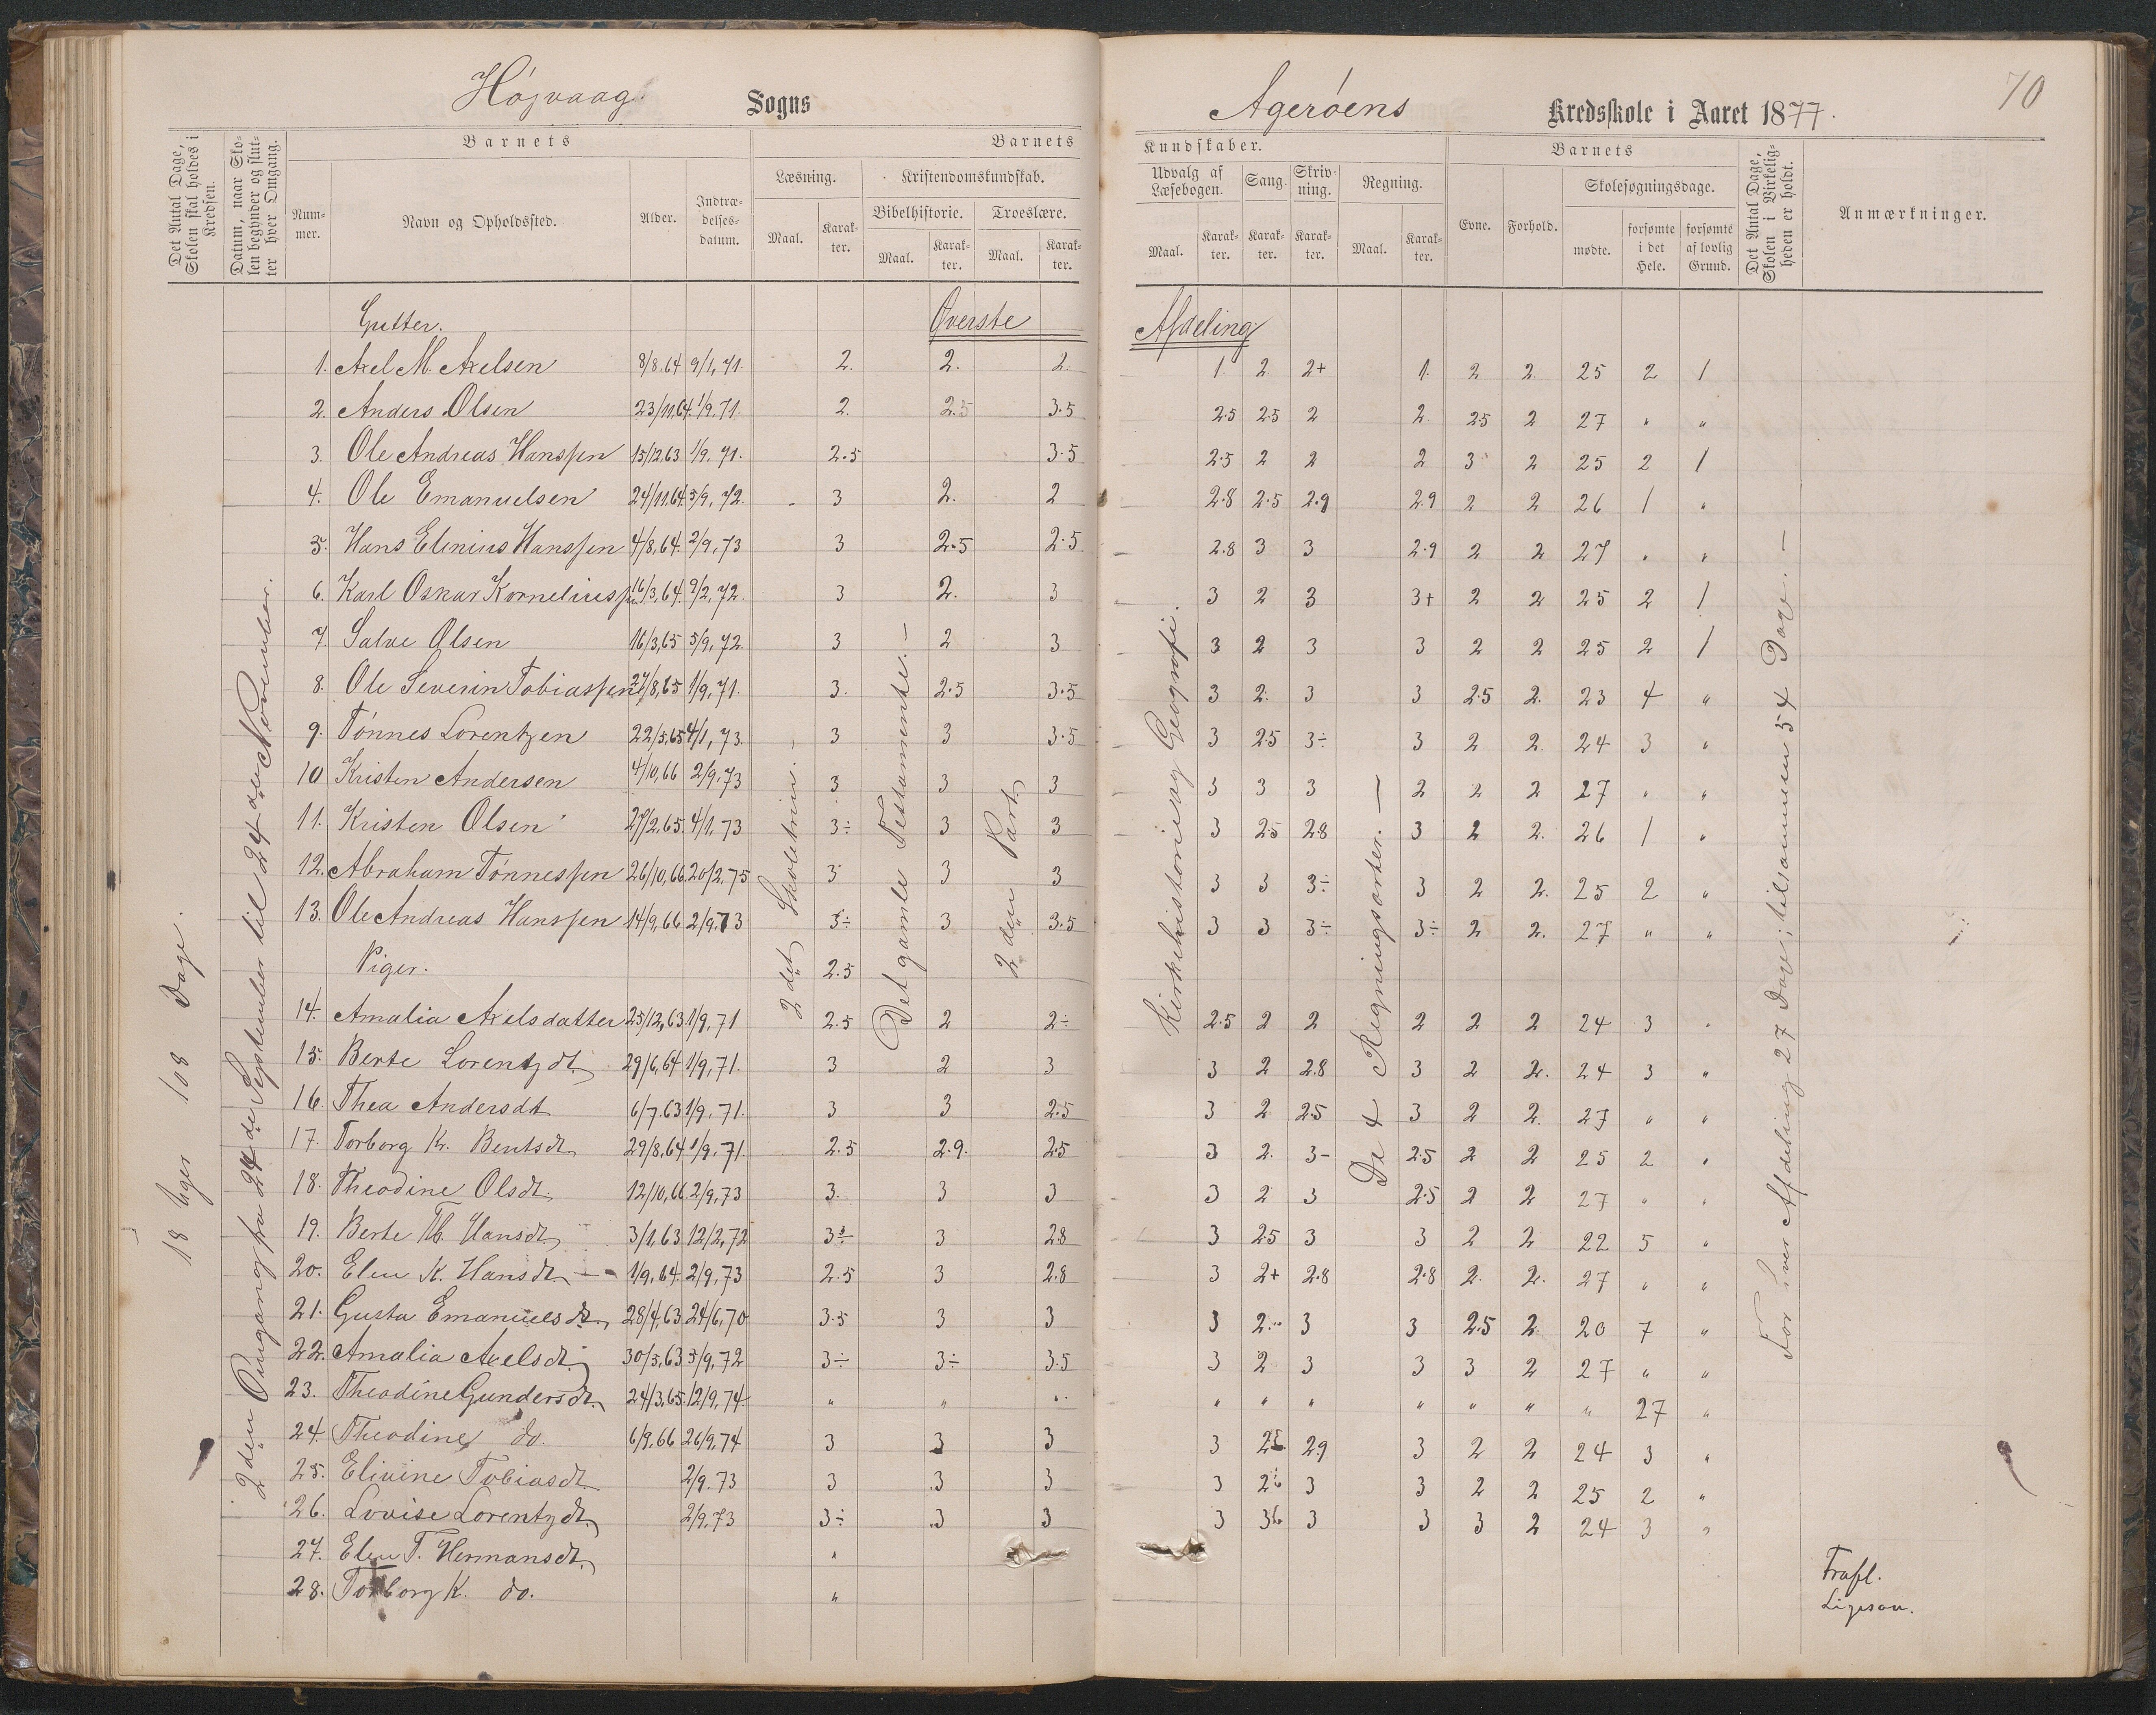 Høivaag Sogns Agerøens Kredsskole i Aaret 1877. 70
Det Antal Dage, Skolen skal holdes i Kredsen.
Datum, naar Skolen begynder og slutter hver Omgang.
Nummer.
Barnets
Navn og Opholdssted.
Alder.
Indtrædelsesdatum.
Barnets
Læsning.
Maal.
Karakter.
Kristendomskundskab.
Bibelhistorie.
Maal.
Karakter.
Troeslære.
Maal.
Karakter.
Kundskaber.
Udvalg af Læsebogen.
Maal.
Karakter.
Sang.
Karakter.
Skrivning.
Karakter.
Regning.
Maal.
Karakter.
Barnets
Evne.
Forhold.
Skolesøgningsdage.
mødte.
forsømte i det Hele.
forsømte af lovlig Grund.
Det Antal Dage, Skolen i Virkeligheden er holdt.
Anmærkninger.
18 Uger 108 Dage.
2den Omgang fra 24de September til 24de November.
2det Skoletrin. –
Det gamle Testamente. –
2den Part.
Kirkehistorie og Geografi.
De 4 Regningsarter. –
For hver Afdeling 27 Dage; tilsammen 54 Dage. –
Gutter. Øverste Afdeling
1. Axel M. Axelsen 8/8.64 9/1,71. 2. 2. 2. 1. 2 2+ 1. 2 2. 25 2 1
2. Anders Olsen 23/11.64. 1/9.71. 2. 2.5 3.5 2.5 2.5 2 2 2.5 2 27 " "
3. Ole Andreas Hanssen 15/12.63 1/9.71. 2.5 3.5 2.5 2 2 2 3 2 25 2 1
4. Ole Emanuelsen 24/11.64. 5/9,72. 3 2. 2 2.8 2.5 2.9 2.9 2 2 26 1 "
5. Hans Elenius Hanssen 4/8,64. 2/9,73 3 2.5 2.5 2.8 3 3 2.9 2 2 27 " "
6. Karl Oskar Korneliussen 16/3,64. 9/2,72. 3 2. 3 3 2 3 3+ 2 2 25 2 1
7. Salve Olsen 16/3,65 5/9,72. 3 2 3 3 2 3 3 2 2 25 2 1
8. Ole Severin Tobiassen 27/8,65 1/9,71. 3. 2.5 3.5 3 2. 3 3 2.5 2. 23 4 "
9. Tønnes Lorentzen 22/5,65 4/1,73. 3 3 3.5 3 2.5 3÷ 3 2 2. 24 3 "
10 Kristen Andersen 4/10,66 2/9.73 3 3 3 3 3 3 2 2 2 27 " "
11. Kristen Olsen 27/2,65. 4/1,73 3÷ 3 3 3 2.5 2.8 3 2 2. 26 1 "
12. Abraham Tønnessen 26/10,66. 20/2.75 3 3 3 3 3 3÷ 3 2 2. 25 2 "
13. Ole Andreas Hanssen 14/9,66 2/9.73 3÷ 3 3.5 3 3 3÷ 3÷ 2 2. 27 " "
Piger. 2.5
14. Amalia Axelsdatter 25/12,63. 1/9,71 2.5 2 2÷ 2.5 2 2 2 2 2 24 3 "
15. Berte Lorentzdt. 29/6,64 1/9,71. 3 2 3 3 2 2.8 3 2 2. 24 3 "
16. Thea Andersdt 6/7.63 1/9,71. 3 3 2.5 3 2 2.5 3 2 2. 27 " "
17. Torborg K. Bentsdt 29/8,64 1/9,71. 2.5 2.9. 2.5 3 2. 3- 2.5 2 2 25 2 "
18. Theodine Olsdt. 12/10,66. 2/9,73 3. 3 3 3 2 3 2.5 2 2 27 " "
19. Berte Th. Hansdt. 3/1,63 12/2,72 3÷ 3 2.8 3 2.5 3 3 2 2 22 5 "
20. Elen K. Hansdt. 1/9,64. 2/9,73 2.5 3 2.8 3 2+ 2.8 2.8 2. 2. 27 " "
21. Gusta Emanuelsdt. 28/4,63 24/6,70 3.5 3 3 3 2. 3 3 2.5 2 20 7 "
22. Amalia Axelsdt. 30/5,63 5/9,72 3÷ 3÷ 3.5 3 2 3 3 3 2 27 " "
23. Theodine Gundersdt. 24/3,65. 12/9,74. " " " " " " " " " " 27 "
24. Theodine do. 6/9.66 26/9,74 3 3 3 3 2.9 3 2 2 24 3 "
25. Elivine Tobiasdt. 2/9.73 3 3 3 3 3 3 2 2 25 2 "
26. Lovise Lorentzdt. 2/9.73 3÷ 3 3 3 3 3 3 2 24 3 "
27. Elen T. Hermansdt. " Frafl.
28. Torborg K. do. " Ligesaa.